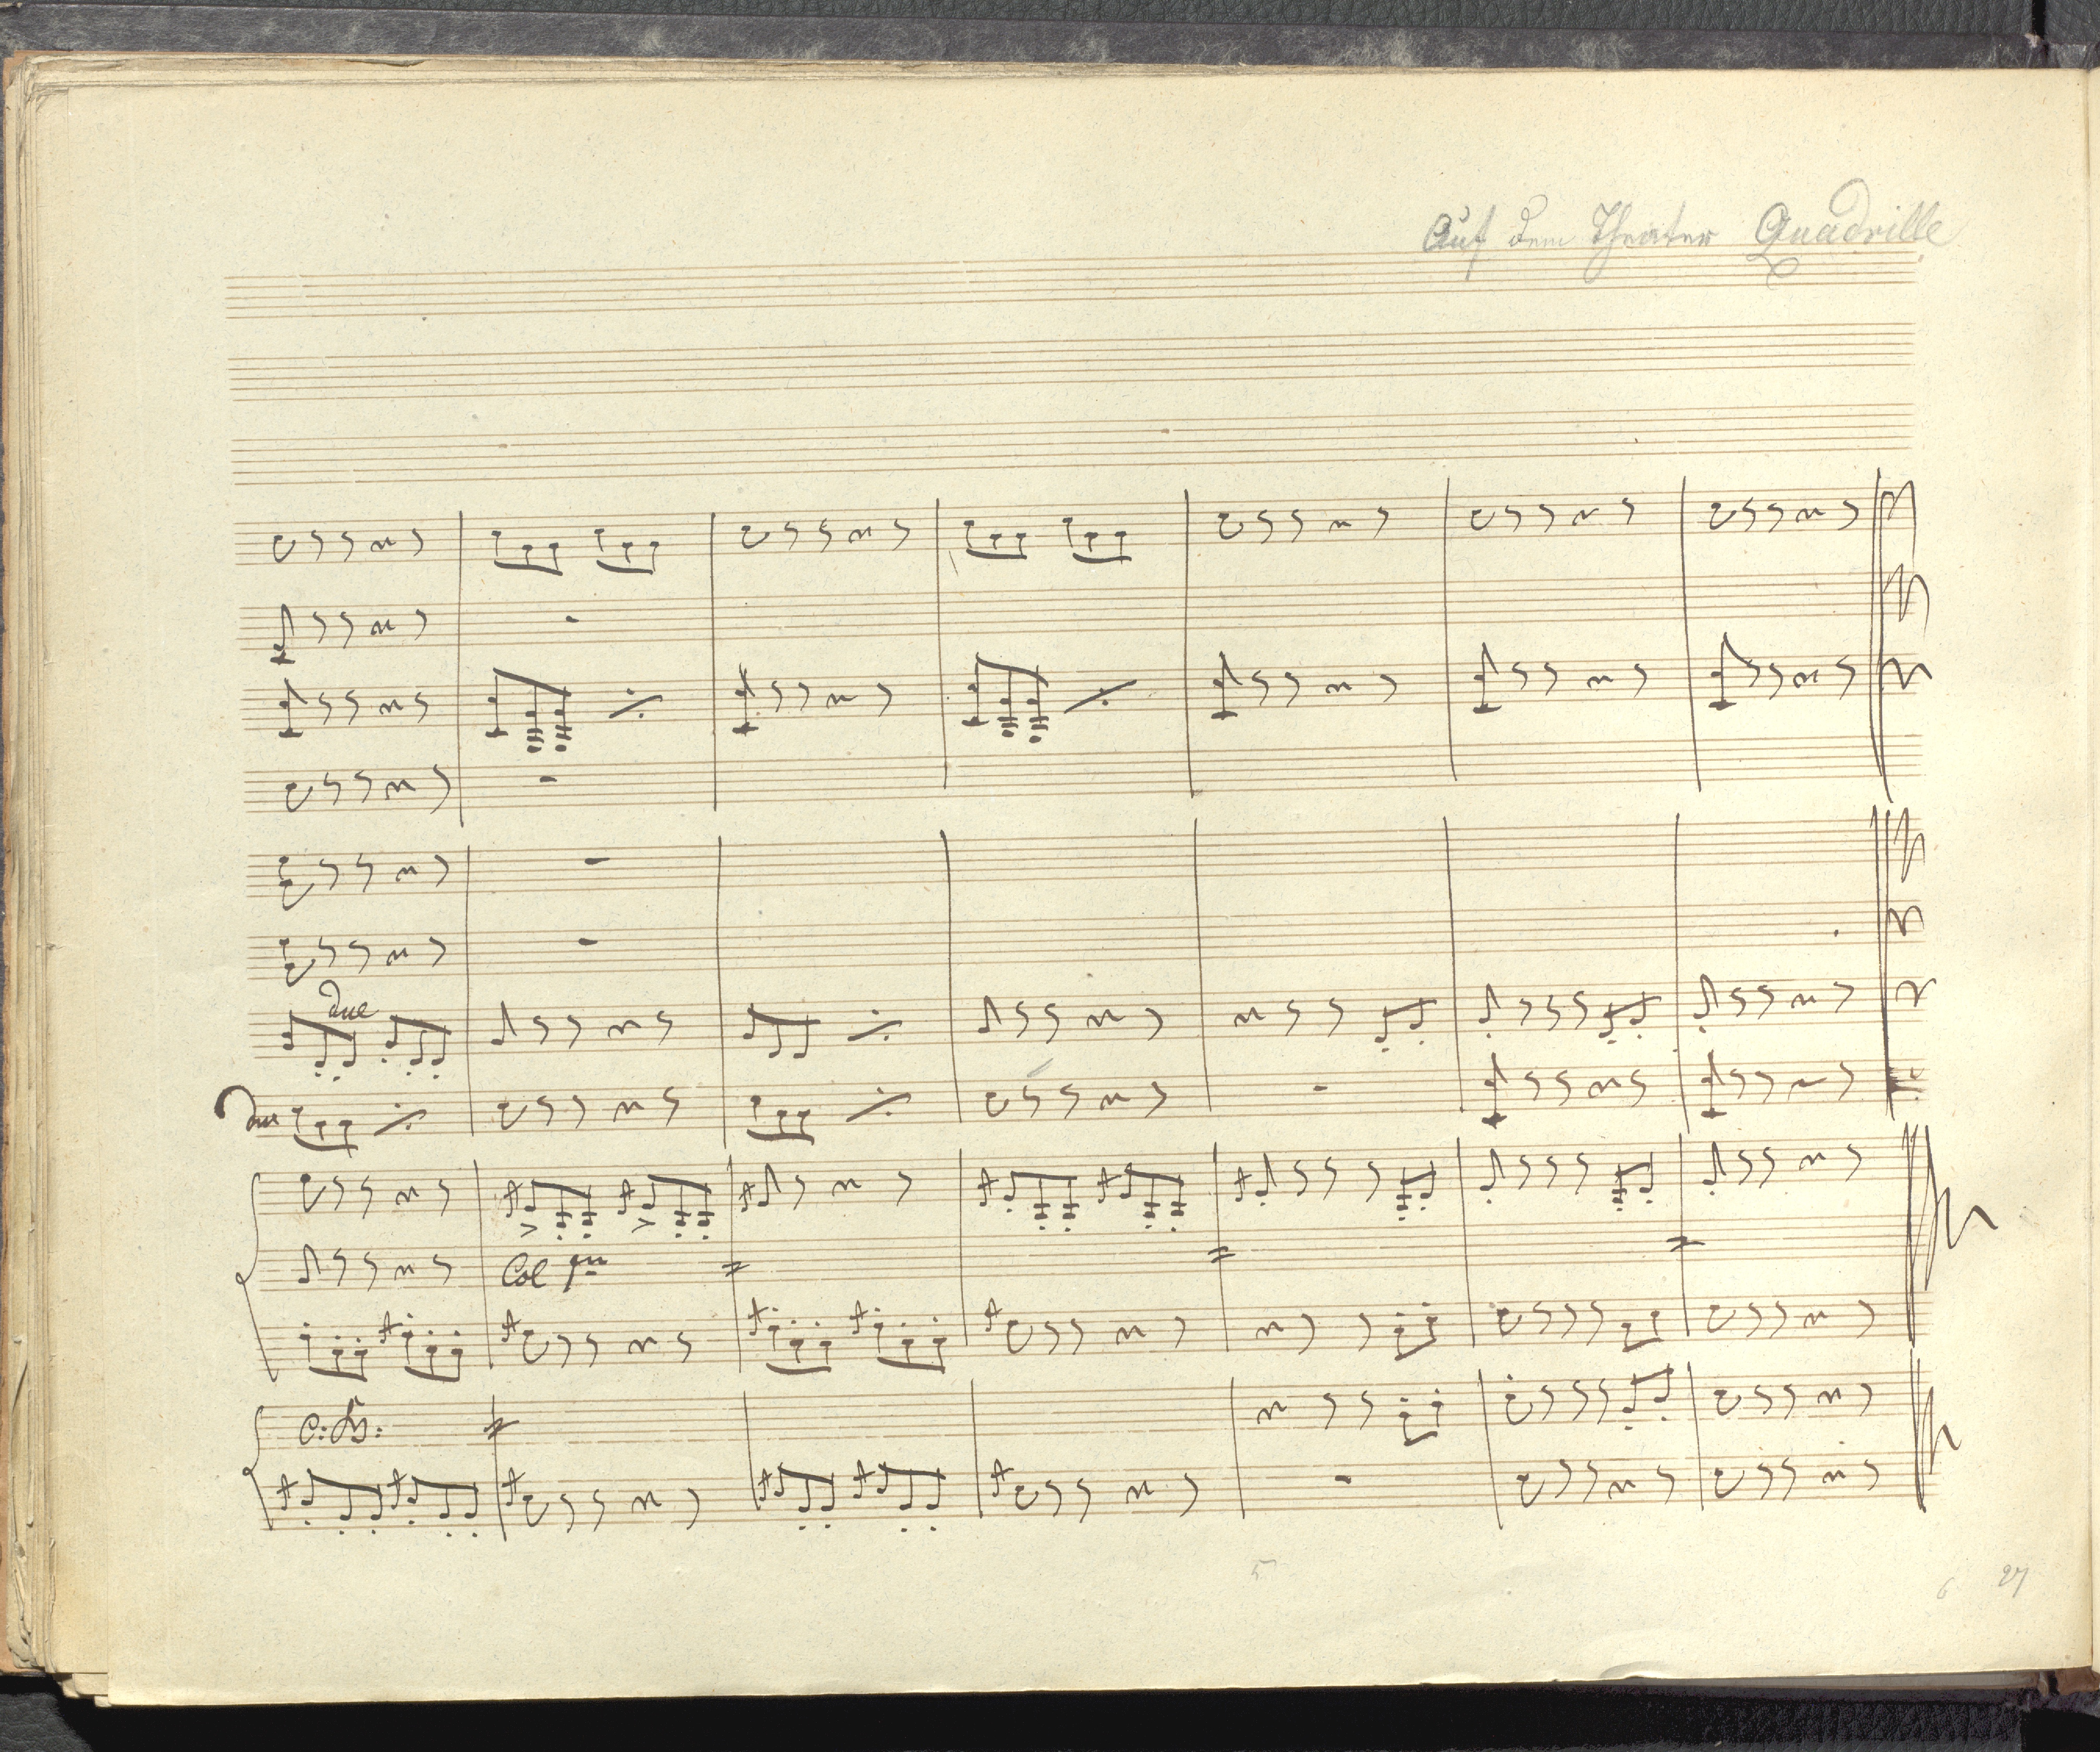 Auf dem Theater Quadrille
due
due
Col 1mo
C: B:
5
6 27